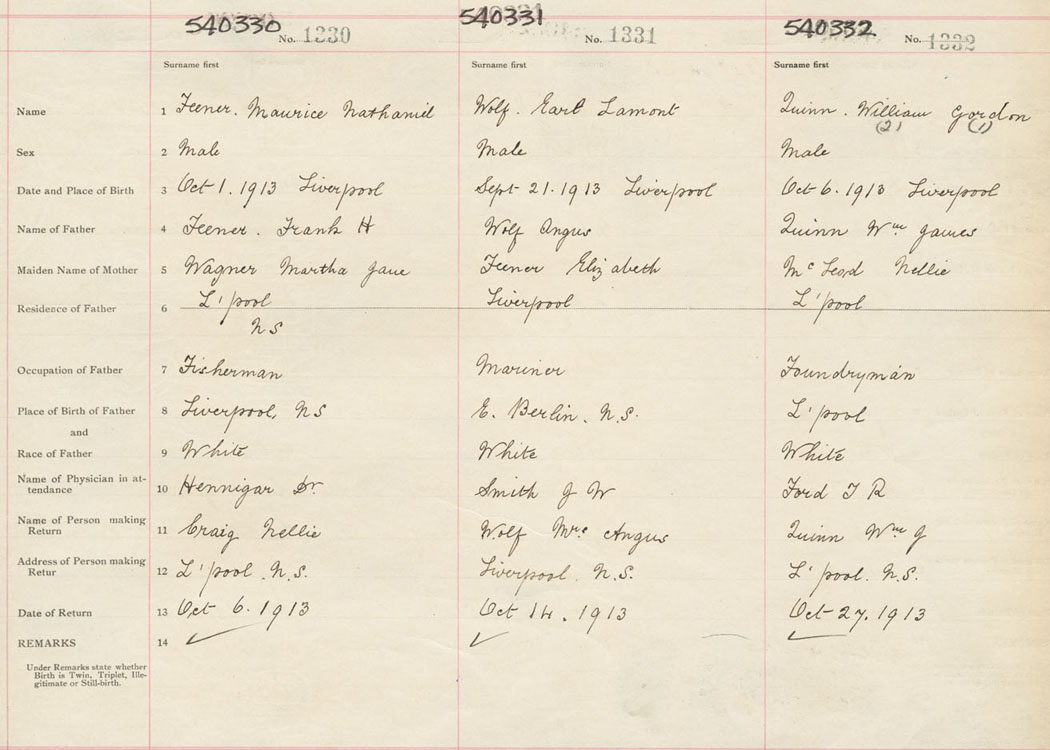 540330 No. 1330 540331 No. 1331 540332 No. 1332
Surname first Surname first Surname first
Name 1 Feener. Maurice Nathaniel Wolf. Earl Lamont Quinn. William Gordon
(2) (1)
Sex 2 Male Male Male
Date and Place of Birth 3 Oct 1. 1913 Liverpool Sept 21. 1913 Liverpool Oct 6. 1913 Liverpool
Name of Father 4 Feener. Frank H Wolf Angus Quinn Wm James
Maiden Name of Mother 5 Wagner Martha Jane Feener Elizabeth McLeod Nellie
Residence of Father 6 L'pool Liverpool L'pool
NS
Occupation of Father 7 Fisherman Mariner Foundryman
Place of Birth of Father 8 Liverpool, NS E. Berlin. N.S. L'pool
and
Race of Father 9 White White White
Name of Physician in at-
tendance 10 Hennigar Dr. Smith J W Ford T R
Name of Person making
Return 11 Craig Nellie Wolf Mrs Angus Quinn Wm J
Address of Person making
Retur 12 L'pool. N.S. Liverpool. N.S. L'pool. N.S.
Date of Return 13 Oct 6. 1913 Oct 14. 1913 Oct 27. 1913
REMARKS 14 ✓ ✓ ✓
Under Remarks state whether
Birth is Twin, Triplet, Ille-
gitimate or Still-birth.